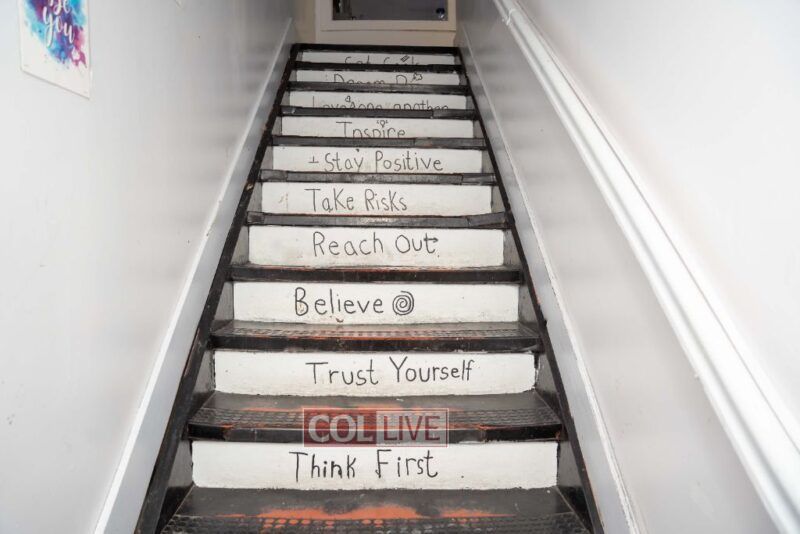 Be
you
Love one another
Inspire
Stay Positive
Take Risks
Reach Out
Believe
Trust Yourself
COLLIVE
Think First